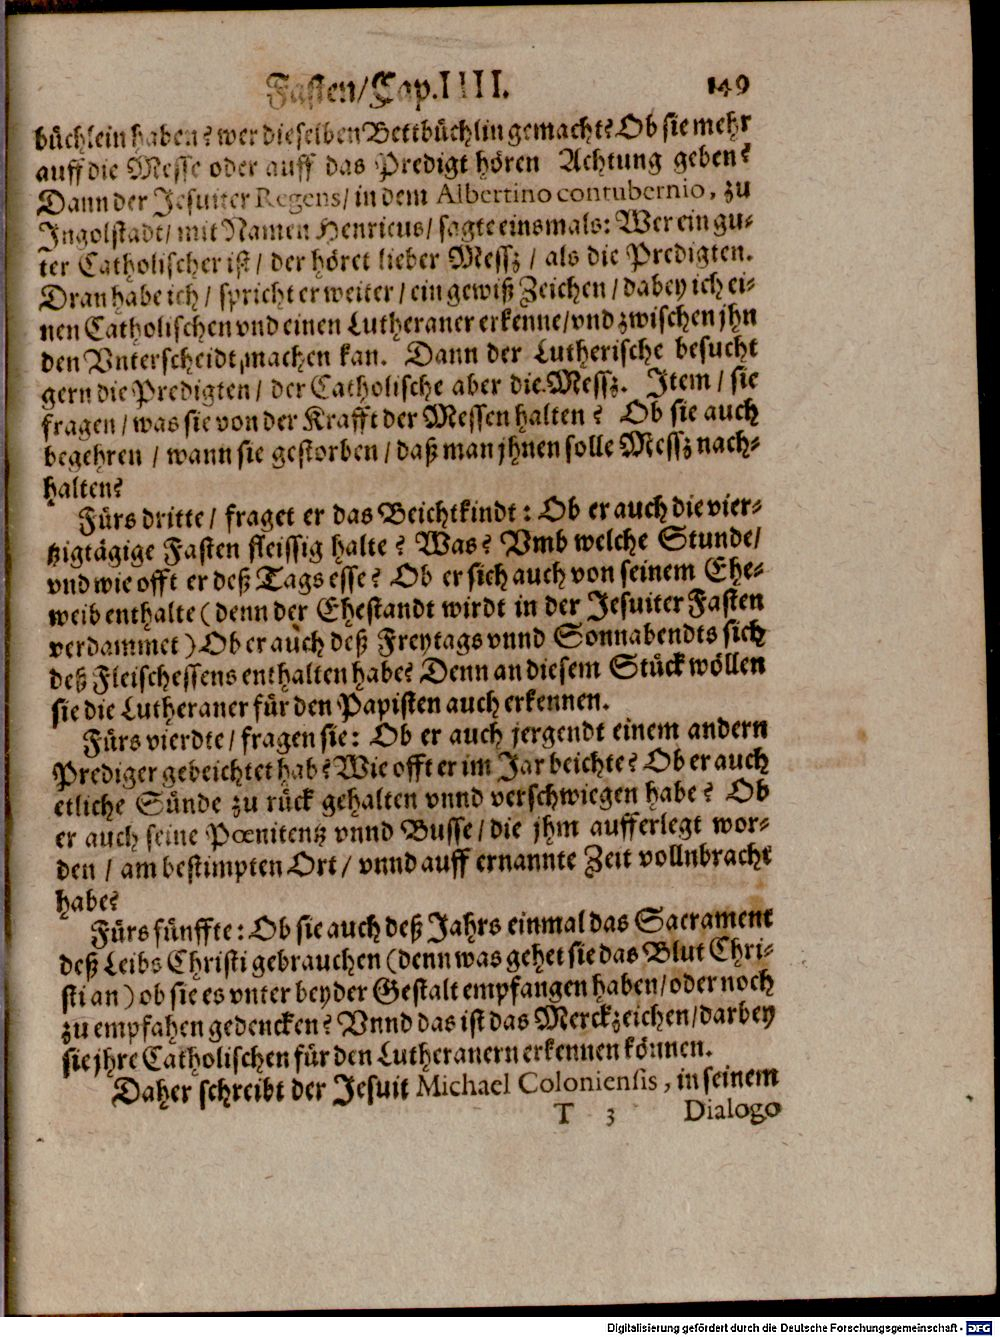 Fasten/Cap.IIII. 149
büchlein haben? wer dieselben Bettbüchlin gemacht? Ob sie mehr
auff die Messe oder auff das Predigt hören Achtung geben?
Dann der Jesuiter Regens/ in dem Albertino contubernio, zu
Ingolstadt/ mit Namen Henricus/ sagte einsmals: Wer ein gu-
ter Catholischer ist/ der höret lieber Messz/ als die Predigten.
Dran habe ich/ spricht er weiter/ ein gewiß Zeichen/ dabey ich ei-
nen Catholischen vnd einen Lutheraner erkenne/ vnd zwischen jhn
den Vnterscheidt, machen kan. Dann der Lutherische besucht
gern die Predigten/ der Catholische aber die Messz. Item/ sie
fragen/ was sie von der Krafft der Messen halten? Ob sie auch
begehren/ wann sie gestorben/ daß man jhnen solle Messz nach-
halten?
Fürs dritte/ fraget er das Beichtkindt: Ob er auch die vier-
tzigtägige Fasten fleissig halte? Was? Vmb welche Stunde/
vnd wie offt er deß Tags esse? Ob er sich auch von seinem Ehe-
weib enthalte (denn der Ehestandt wirdt in der Jesuiter Fasten
verdammet) Ob er auch deß Freytags vnnd Sonnabendts sich
deß Fleischessens enthalten habe? Denn an diesem Stück wöllen
sie die Lutheraner für den Papisten auch erkennen.
Fürs vierdte/ fragen sie: Ob er auch jergendt einem andern
Prediger gebeichtet hab? Wie offt er im Jar beichte? Ob er auch
etliche Sünde zu rück gehalten vnnd verschwiegen habe? Ob
er auch seine Pœnitentz vnnd Busse/ die jhm aufferlegt wor-
den/ am bestimpten Ort/ vnnd auff ernannte Zeit vollnbracht
habe?
Fürs fünffte: Ob sie auch deß Jahrs einmal das Sacrament
deß Leibs Christi gebrauchen (denn was gehet sie das Blut Chri-
sti an) ob sie es vnter beyder Gestalt empfangen haben/ oder noch
zu empfahen gedencken? Vnnd das ist das Merckzeichen/ darbey
sie jhre Catholischen für den Lutheranern erkennen können.
Daher schreibt der Jesuit Michael Coloniensis, in seinem
T 3 Dialogo
Digitalisierung gefördert durch die Deutsche Forschungsgemeinschaft - DFG